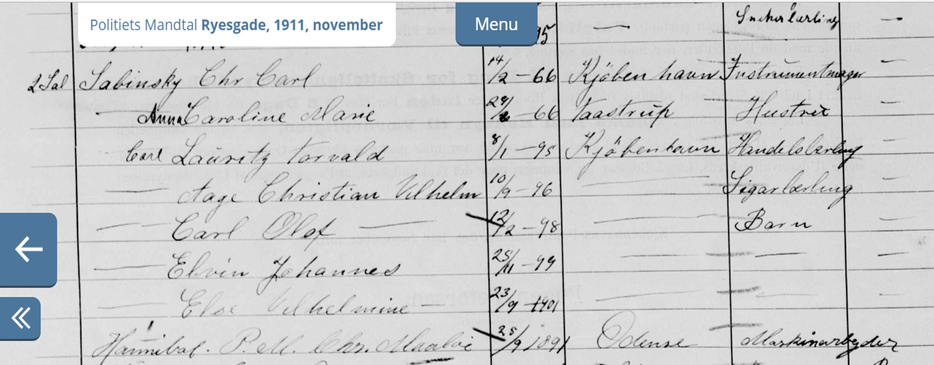 Politiets Mandtal Ryesgade, 1911, november
Menu
95
2 Sal Sabinsky Chr Carl 14/2 - 66 Kjöbenhavn Instrumentmager
Anna Caroline Marie - 66 Taastrup Hustru
Carl Lauritz Torvald 8/1 - 95 Kjöbenhavn Handelslærling
Aage Christian Vilhelm 10/9 - 96 Sigarlærling
Carl Olof 12/2 - 98 Barn
Elvin Johannes 25/11 - 99
Else Vilhelmine 23/9 - 1901
Hannibal. P. M. Chr. 25/9 1891 Odense Maskinarbejder